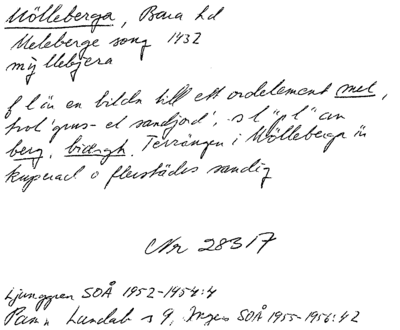 Mölleberga, Bara hd
Meleberge song 1432
myllebjera
f l än en bildn till ett ordelement mel,
trol 'grus- el sandjord'; s l
berg, bidrgh. Terrängen i Mölleberga är
kuperad o flerstädes sandig
Nr 28317
Ljunggren SOÅ 1952-1954:4
Pamp Lundab s 9, Ingers SOÅ 1955-1956:42